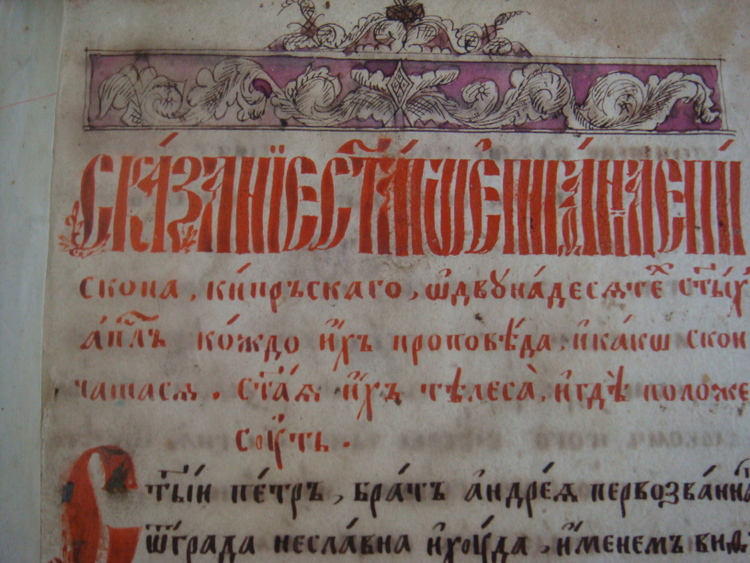 СКА́ЗАНЇЕ СТ҃А́ГѠ Е҆ПИФА́НЇѦ Е҆ПИ́
скопа, ки́пръскаго, ѿдвуна́десѧте ст҃ы́хъ
а҆пл҃ъ ко́ждо и҆́хъ проповѣ́да, и҆ка́кѡ скон
ча́шасѧ. ст҃а́ѧ и҆́хъ тѣлеса̀, и҆гдѣ̀ положе
соу́ть.
Ст҃ы́и пе́тръ, бра́тъ а҆ндре́ѧ первозва́нна
ѿгра́да несла́вна и҆хоу́да, и҆́менемъ виѳ